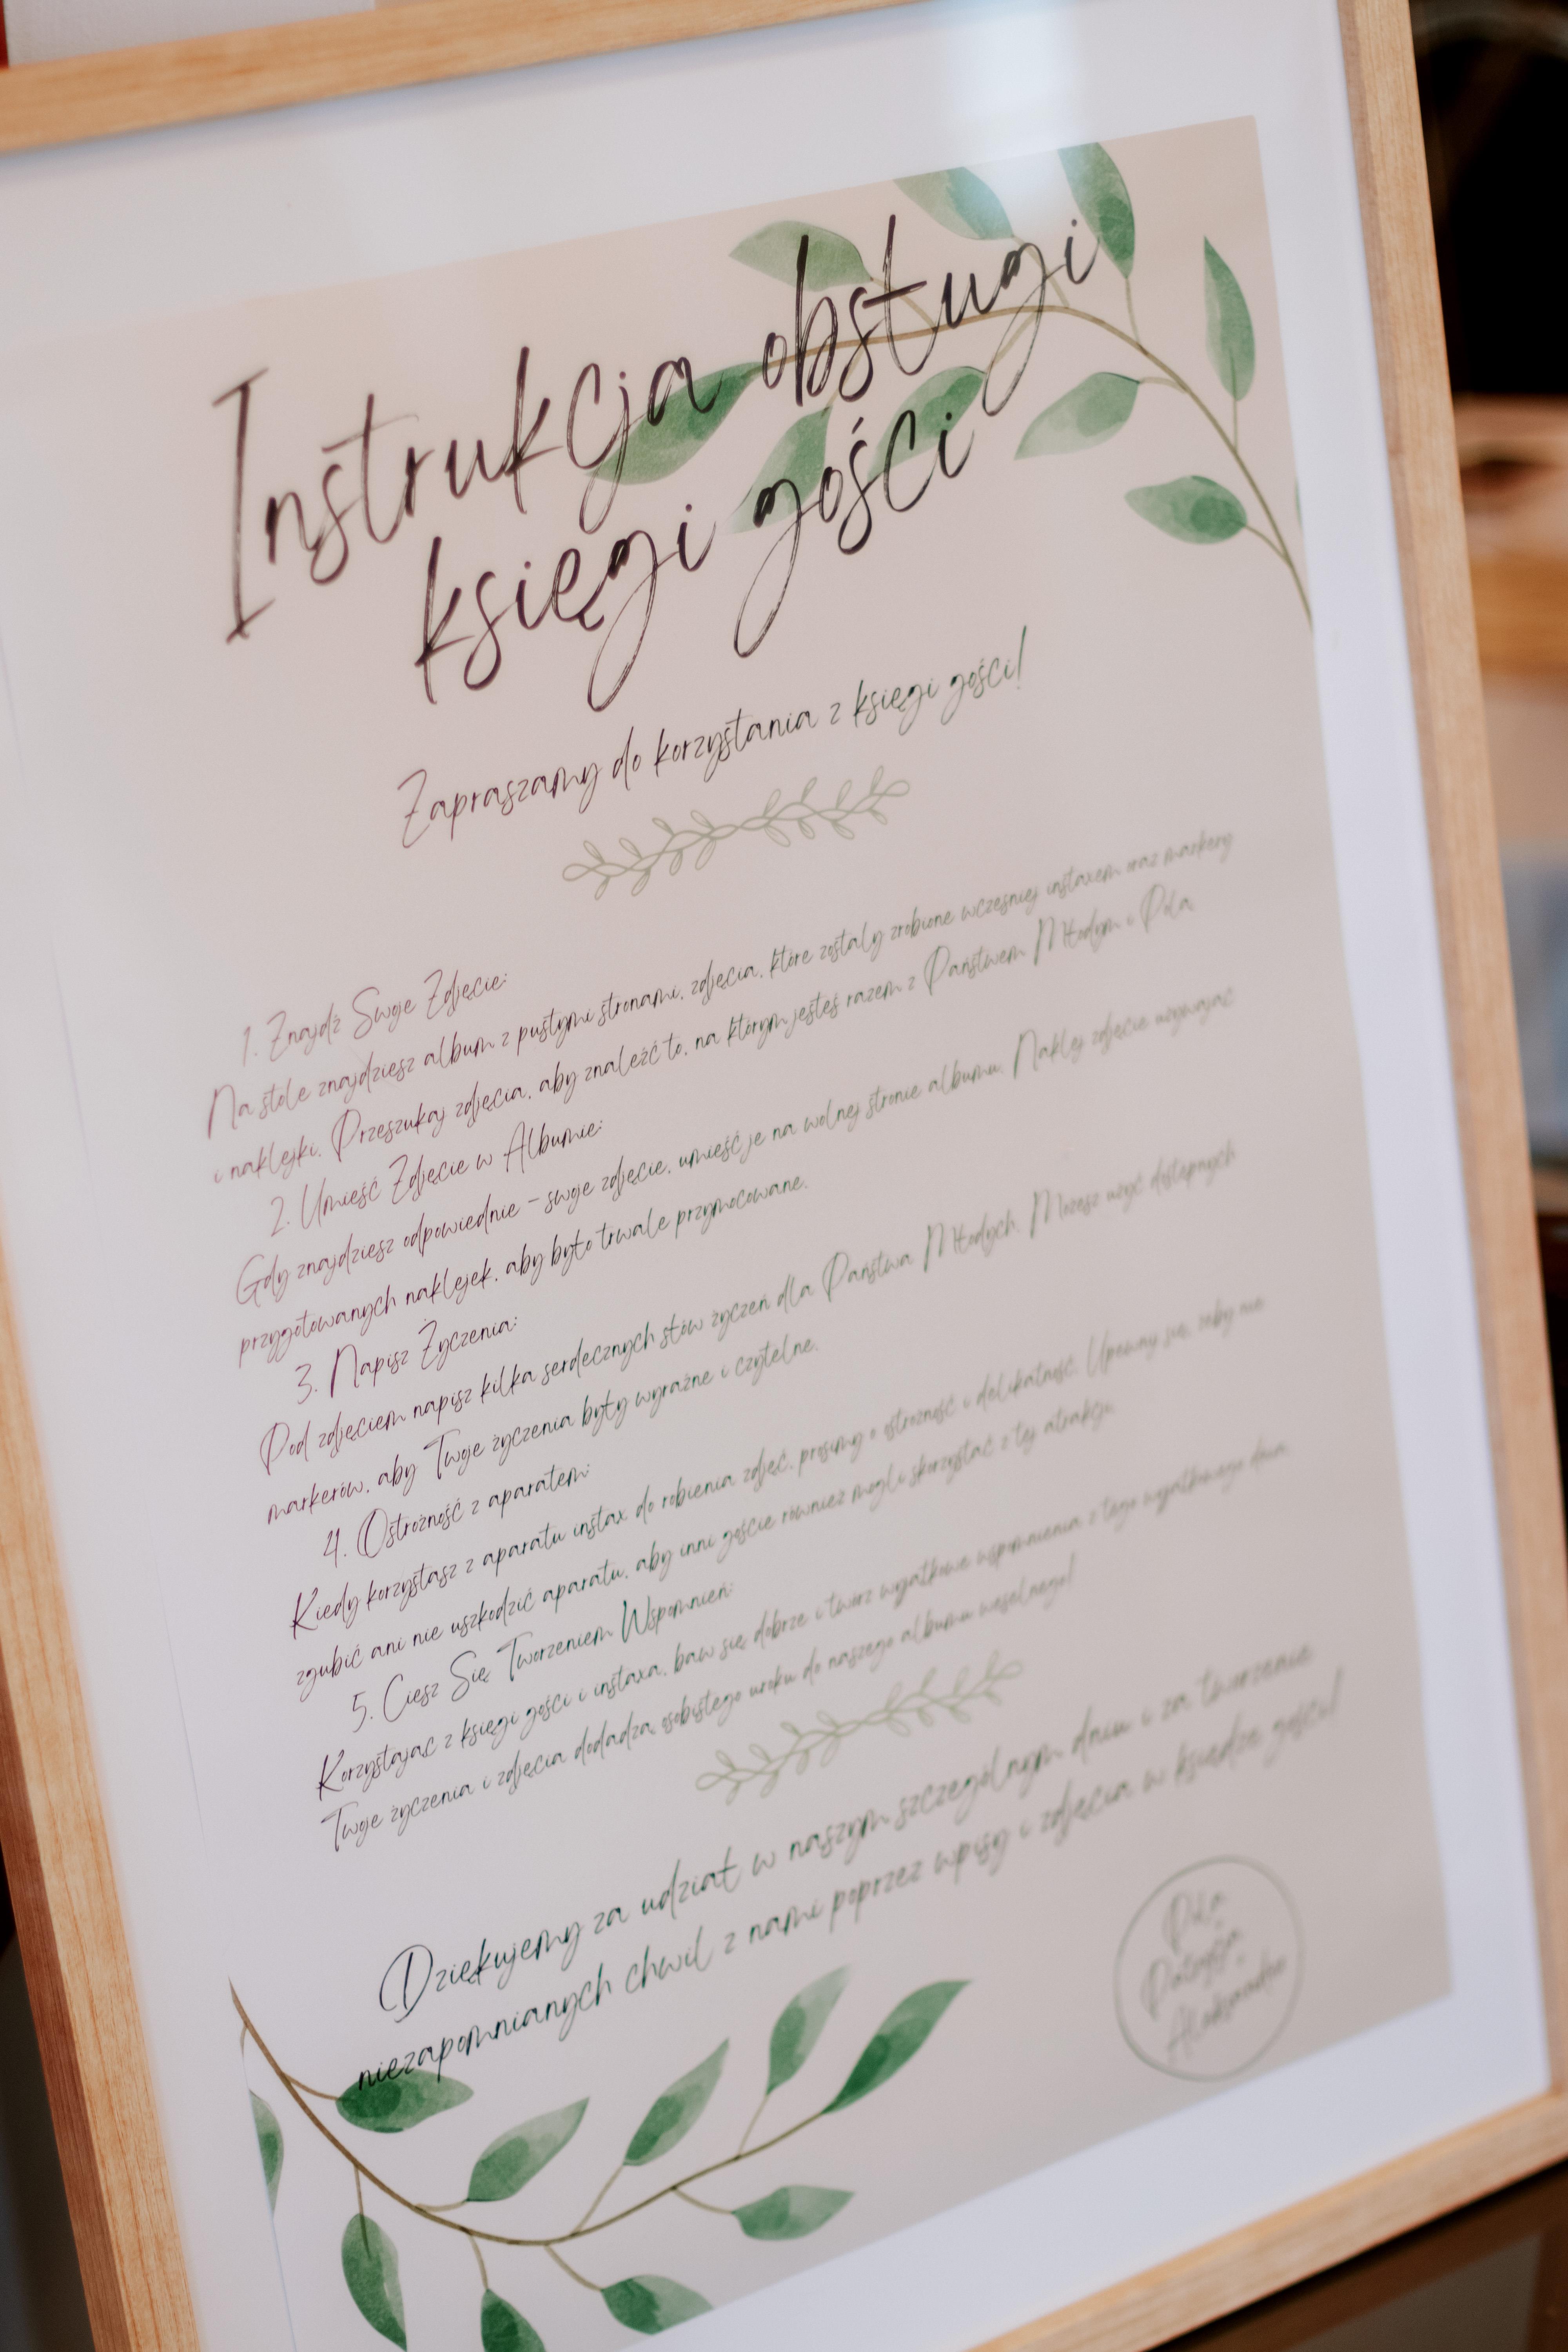 Instrukcja obsługi
księgi gości
Zapraszamy do korzystania z księgi gości!
1. Znajdź Swoje Zdjęcie:
Na stole znajdziesz album z pustymi stronami, zdjęcia, które zostaly zrobione wcześniej instaxem oraz markery
i naklejki. Przeszukaj zdjęcia, aby znaleźć to, na którym jesteś razem z Państwem Młodym i Polą.
2. Umieść Zdjęcie w Albumie:
Gdy znajdziesz odpowiednie - swoje zdjęcie, umieść je na wolnej stronie albumu. Naklej zdjęcie używając
przygotowanych naklejek, aby było trwale przymocowane.
3. Napisz Życzenia:
Pod zdjęciem napisz kilka serdecznych słów życzeń dla Państwa Młodych. Możesz użyć dostępnych
markerów, aby Twoje życzenia były wyraźne i czytelne.
4. Ostrożność z aparatem:
Kiedy korzystasz z aparatu instax do robienia zdjęć, prosimy o ostrożność i delikatność. Upewnij się, żeby nie
zgubić ani nie uszkodzić aparatu, aby inni goście również mogli skorzystać z tej atrakcji.
5. Ciesz Się Tworzeniem Wspomnień:
Korzystając z księgi gości i instaxa, baw się dobrze i twórz wyjątkowe wspomnienia z tego wyjątkowego dnia.
Twoje życzenia i zdjęcia dodadzą osobistego uroku do naszego albumu weselnego!
Dziękujemy za udział w naszym szczególnym dniu i za tworzenie
niezapomnianych chwil z nami poprzez wpisy i zdjęcia w księdze gości!
Pola
Patrycja
Aleksander